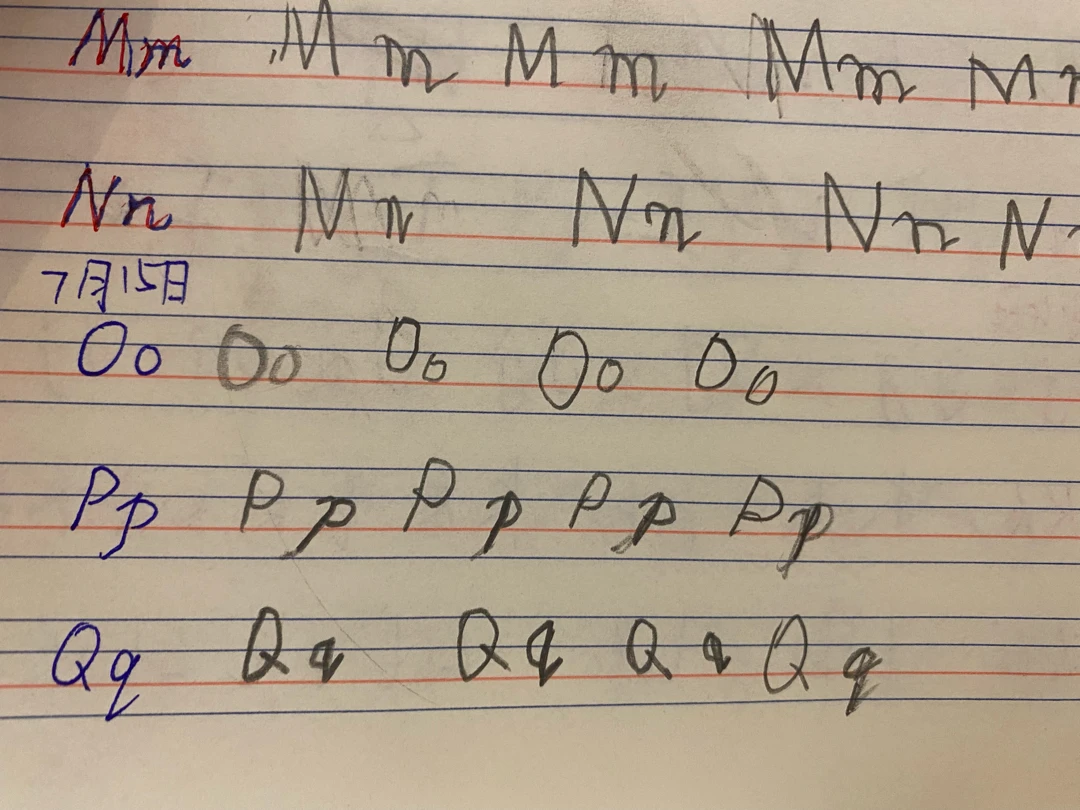 Mm M m M m Mm M n
Nn N n Nn Nn N
7月15日
Oo Oo Oo Oo Oo
Pp P p P p P p Pp
Qq Q q Q q Q q Q q